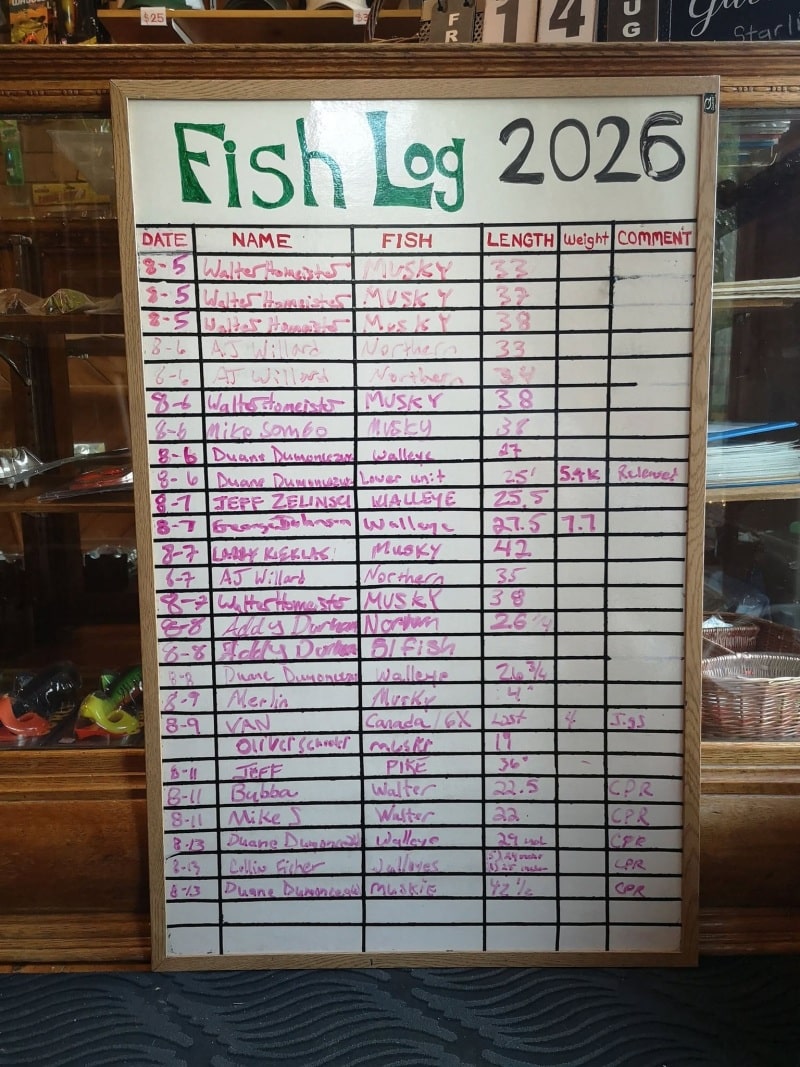 $25
FR
14
UG
Starli
Fish Log 2026
DATE NAME FISH LENGTH Weight COMMENT
8-5 Walter Homeister MUSKY 33
8-5 Walter Homeister MUSKY 37
8-5 Walter Homeister MUSKY 38
8-6 AJ Willard Northern 33
8-6 AJ Willard Northern 34
8-6 Walter Homeister MUSKY 38
8-6 Mike Sombo MUSKY 38
8-6 Duane Walleye 27
8-6 Duane Lower unit 25" 5.9K Released
8-7 JEFF ZELINSCI WALLEYE 25.5
8-7 George Johnson Walleye 27.5 7.7
8-7 LARRY Musky 42
8-7 AJ Willard Northern 35
8-7 Walter Homeister MUSKY 38
8-8 Addy Durham Northern 26 1/4
8-8 Addy Durham fish
8-8 Duane Walleye 26 3/4
8-9 Merlin Musky
8-9 VAN Canada/6X Lost 4 Jigs
Oliver MUSKY 19
8-11 JEFF PIKE 36"
8-11 Bubba Walter 22.5 CPR
8-11 Mike S Walter 22 CPR
8-13 Duane Walleye 29 CPR
8-13 Collin CPR
8-13 Duane MUSKIE 42 1/2 CPR